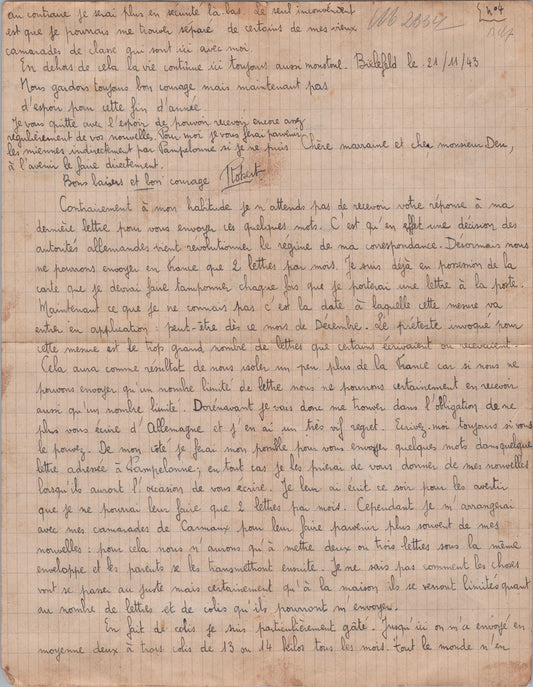 au contraire je serai plus en sécurité la bas. Le seul inconvénient
est que je pourrais me trouver séparé de certains de mes vieux
camarades de classe qui sont ici avec moi.
En dehors de cela la vie continue ici toujours aussi monotone.
Nous gardons toujours bon courage mais maintenant pas
d'espoir pour cette fin d'année.
Je vous quitte avec l'espoir de pouvoir recevoir encore assez
régulièrement de vos nouvelles. Pour moi je vous ferai parvenir
les miennes indirectement par Pampelonne si je ne puis
à l'avenir le faire directement.
Bons baisers et bon courage Robert
n°4
Bielefeld le 21/11/43
Chère marraine et cher monsieur Deu,
Contrairement à mon habitude je n'attends pas de recevoir votre réponse à ma
dernière lettre pour vous envoyer ces quelques mots. C'est qu'en effet une décision des
autorités allemandes vient revolutionner le régime de ma corespondance. Desormais nous
ne pourrons envoyer en France que 2 lettres par mois. Je suis déjà en possession de la
carte que je devrai faire tamponner chaque fois que je porterai une lettre à la poste.
Maintenant ce que je ne connais pas c'est la date à laquelle cette mesure va
entrer en application : peut-être dès ce mois de Décembre. Le prétexte invoqué pour
cette mesure est le trop grand nombre de lettres que certains écrivaient ou recevaient.
Cela aura comme resultat de nous isoler un peu plus de la France car si nous ne
pouvons envoyer qu'un nombre limité de lettre nous ne pourrons certainement en recevoir
aussi qu'un nombre limité. Dorénavant je vais donc me trouver dans l'obligation de ne
plus vous écrire d'Allemagne et j'en ai un très vif regret. Ecrivez-moi toujours si vous
le pouvez. De mon côté je ferai mon possible pour vous envoyer quelques mots dans quelque
lettre adressée à Pampelonne; en tout cas je les prierai de vous donner de mes nouvelles
lorsqu'ils auront l'occasion de vous écrire. Je leur ai écrit ce soir pour les avertir
que je ne pourrai leur faire que 2 lettres par mois. Cependant je m'arrangerai
avec mes camarades de Carmaux pour leur faire parvenir plus souvent de mes
nouvelles : pour cela nous n'aurons qu'à mettre deux ou trois lettres sous la même
enveloppe et les parents se les transmettront ensuite. Je ne sais pas comment les choses
vont se passer au juste mais certainement qu'à la maison ils se verront limités quant
au nombre de lettres et de colis qu'ils pourront m'envoyer.
En fait de colis je suis particulièrement gâté. Jusqu'ici on m'a envoyé en
moyenne deux à trois colis de 13 ou 14 kilos tous les mois. Tout le monde n'en